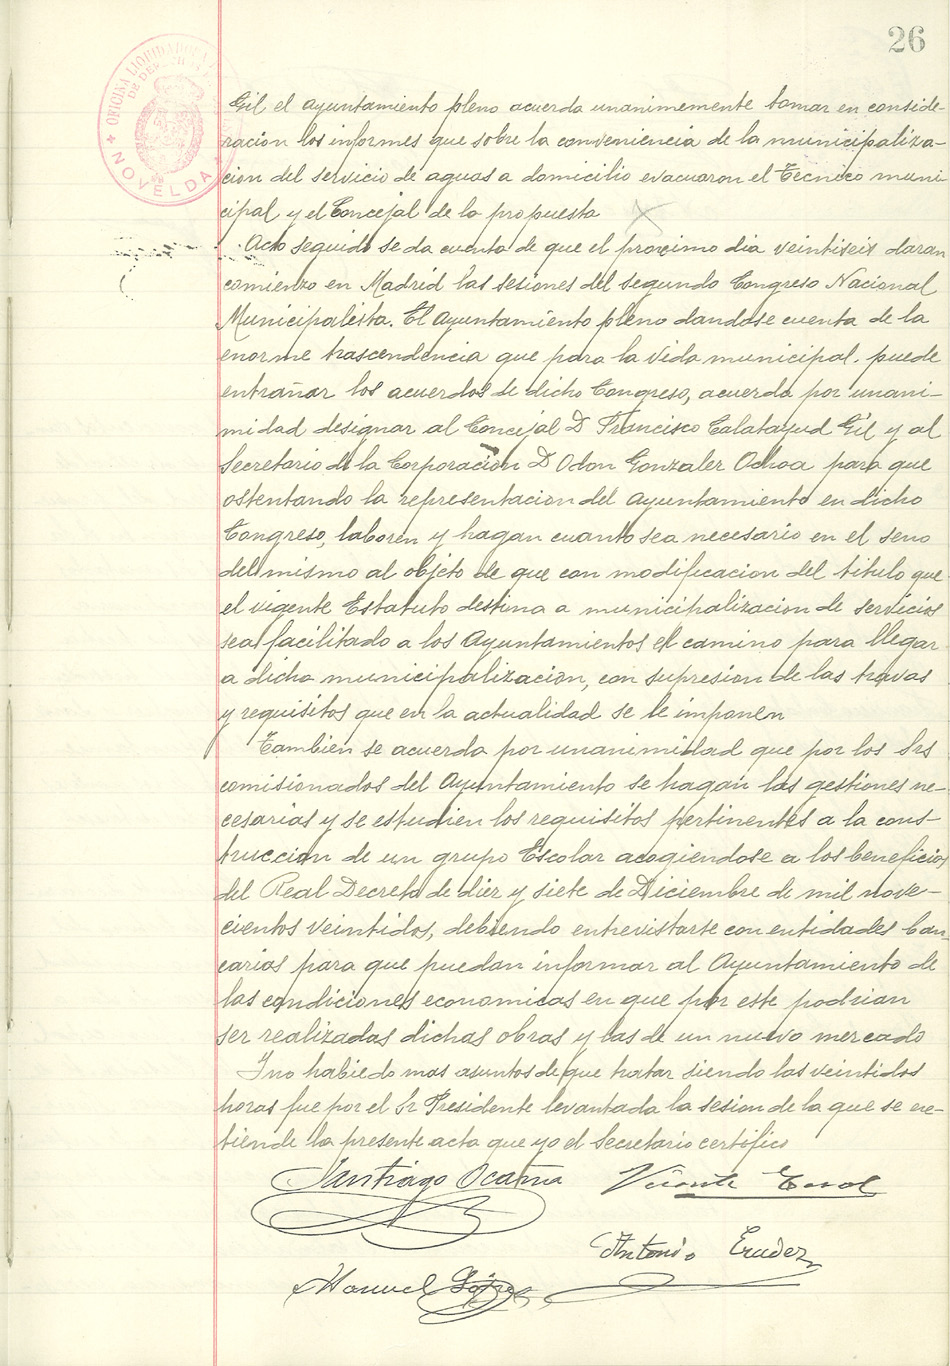 26
OFICINA LIQUIDADORA
NOVELDA
Gil el ayuntamiento pleno acuerda unanimemente tomar en conside-
racion los informes que sobre la conveniencia de la municipaliza-
cion del servicio de aguas a domicilio evacuaron el Tecnico muni-
cipal y el Concejal de la propuesta
Acto seguido se da cuenta de que el proximo dia veintiseis daran
comienzo en Madrid las sesiones del segundo Congreso Nacional
Municipalista. El Ayuntamiento pleno dandose cuenta de la
enorme trascendencia que para la vida municipal puede
entrañar los acuerdos de dicho Congreso, acuerda por unani-
midad designar al Concejal D Francisco Calatayud Gil y al
Secretario de la Corporacion D Odon Gonzalez Ochoa para que
ostentando la representacion del Ayuntamiento en dicho
Congreso, laboren y hagan cuanto sea necesario en el seno
del mismo al objeto de que con modificacion del titulo que
el vigente Estatuto destina a municipalizacion de servicios
sea facilitado a los Ayuntamientos el camino para llegar
a dicha municipalizacion, con supresion de las travas
y requisitos que en la actualidad se le imponen
Tambien se acuerda por unanimidad que por los Srs
comisionados del Ayuntamiento se hagan las gestiones ne-
cesarias y se estudien los requisitos pertinentes a la cons-
truccion de un grupo Escolar acogiendose a los beneficios
del Real Decreto de diez y siete de Diciembre de mil nove-
cientos veintidos, debiendo entrevistarse con entidades ban-
carias para que puedan informar al Ayuntamiento de
las condiciones economicas en que por este podrian
ser realizadas dichas obras y las de un nuevo mercado
Y no habiedo mas asuntos de que tratar siendo las veintidos
horas fue por el Sr Presidente levantada la sesion de la que se ex-
tiende la presente acta que yo el Secretario certifico
Santiago Ocaña Vicente
Antonio
Manuel